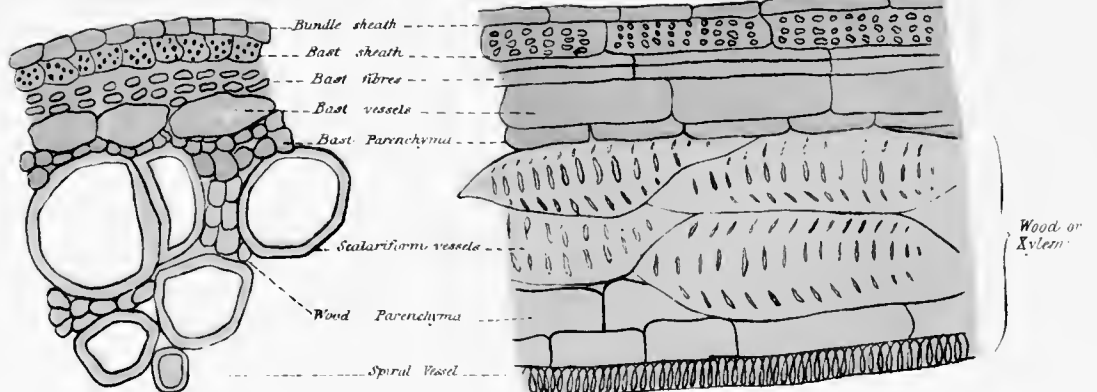 Bundle sheath
Bast sheath
Bast fibres
Bast vessels
Bast Parenchyma
Scalariform vessels
Wood Parenchyma
Spiral Vessel
Wood or
Xylem